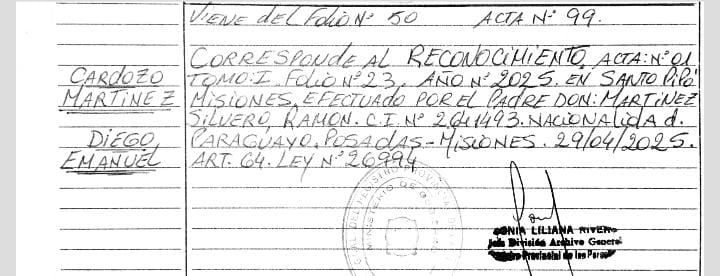 VIENE DEL FOLIO Nº 50 ACTA Nº 99.
CORRESPONDE AL RECONOCIMIENTO, ACTA: Nº 01
TOMO: I FOLIO Nº 23. AÑO Nº 2025. EN SANTO PIPÓ
MISIONES, EFECTUADO POR EL PADRE DON: MARTINEZ
SILVERO RAMON. C.I. Nº 2641493. NACIONALIDAD.
PARAGUAYO. POSADAS-MISIONES. 29/04/2025.
ART. 64. LEY Nº 26994
CARDOZO
MARTINEZ
DIEGO
EMANUEL
SONIA LILIANA RIVERO
Jefa División Archivo General
Registro Provincial de las Personas